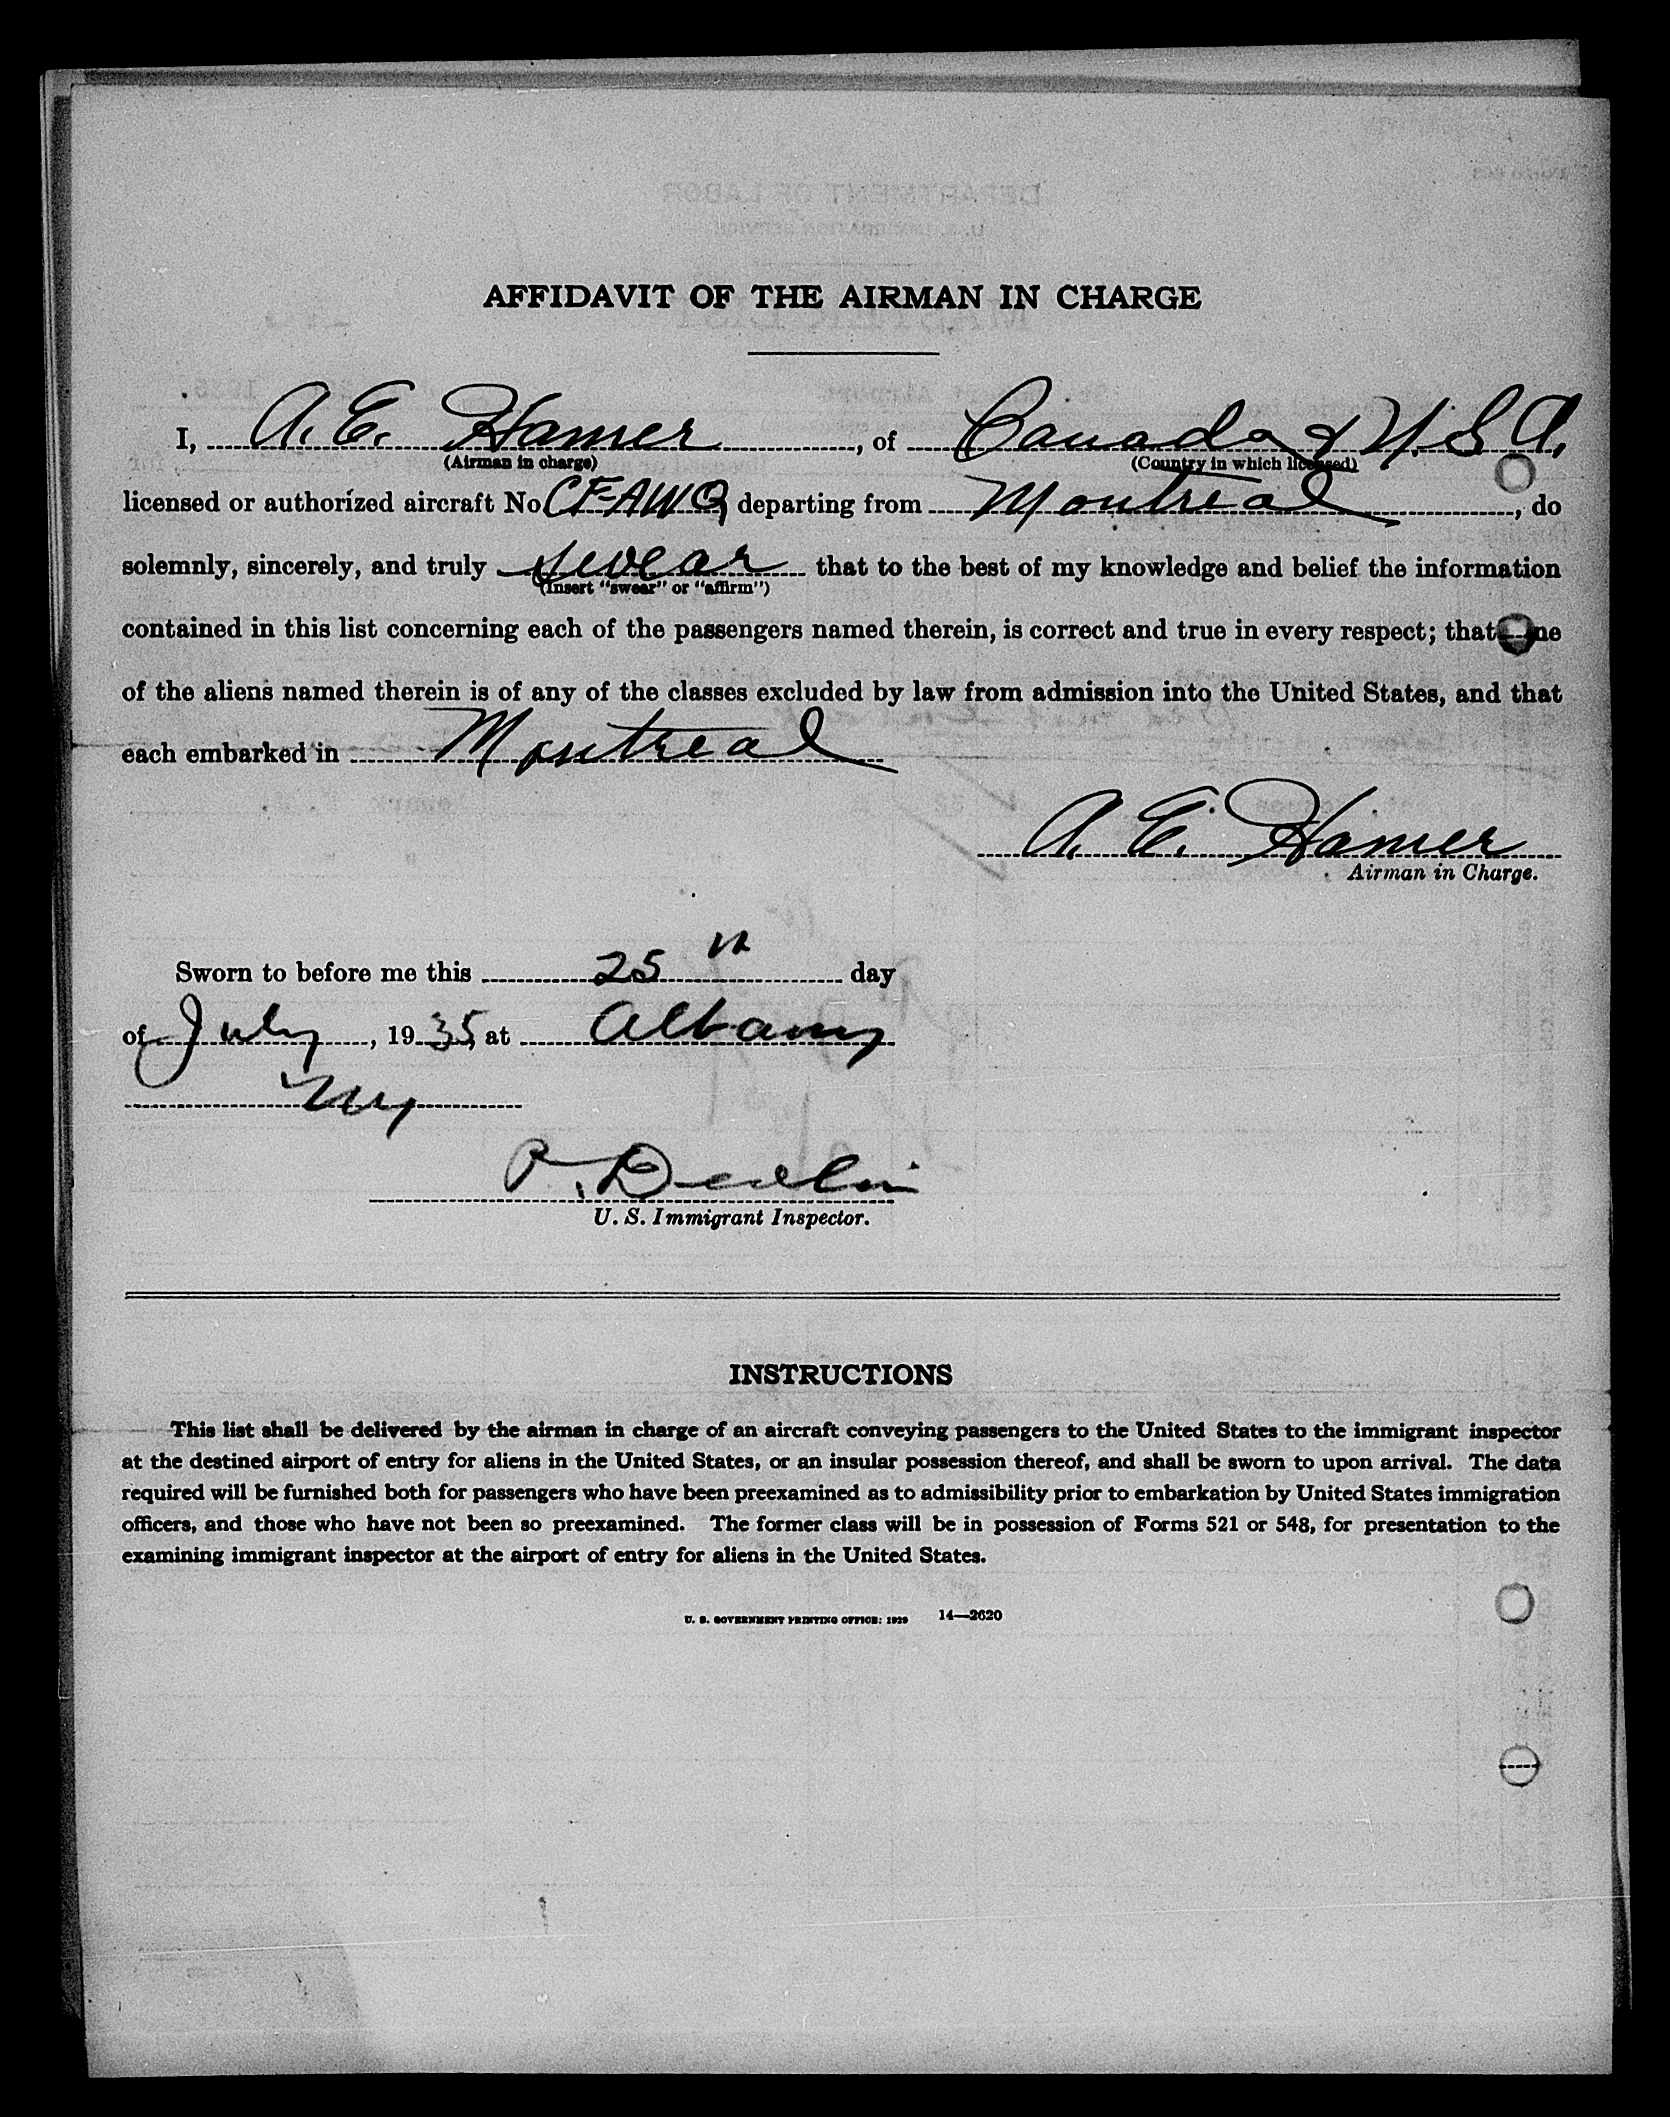 AFFIDAVIT OF THE AIRMAN IN CHARGE
I, A. E. Hamer, of Canada & U.S.A.
(Airman in charge) (Country in which licensed)
licensed or authorized aircraft No CF-AWQ, departing from Montreal, do
solemnly, sincerely, and truly swear that to the best of my knowledge and belief the information
(Insert "swear" or "affirm")
contained in this list concerning each of the passengers named therein, is correct and true in every respect; that
of the aliens named therein is of any of the classes excluded by law from admission into the United States, and that
each embarked in Montreal
A. E. Hamer
Airman in Charge.
Sworn to before me this 25th day
of July, 1935, at Albany
NY
P. Devlin
U. S. Immigrant Inspector.
INSTRUCTIONS
This list shall be delivered by the airman in charge of an aircraft conveying passengers to the United States to the immigrant inspector
at the destined airport of entry for aliens in the United States, or an insular possession thereof, and shall be sworn to upon arrival. The data
required will be furnished both for passengers who have been preexamined as to admissibility prior to embarkation by United States immigration
officers, and those who have not been so preexamined. The former class will be in possession of Forms 521 or 548, for presentation to the
examining immigrant inspector at the airport of entry for aliens in the United States.
U. S. GOVERNMENT PRINTING OFFICE: 1929 14—2620